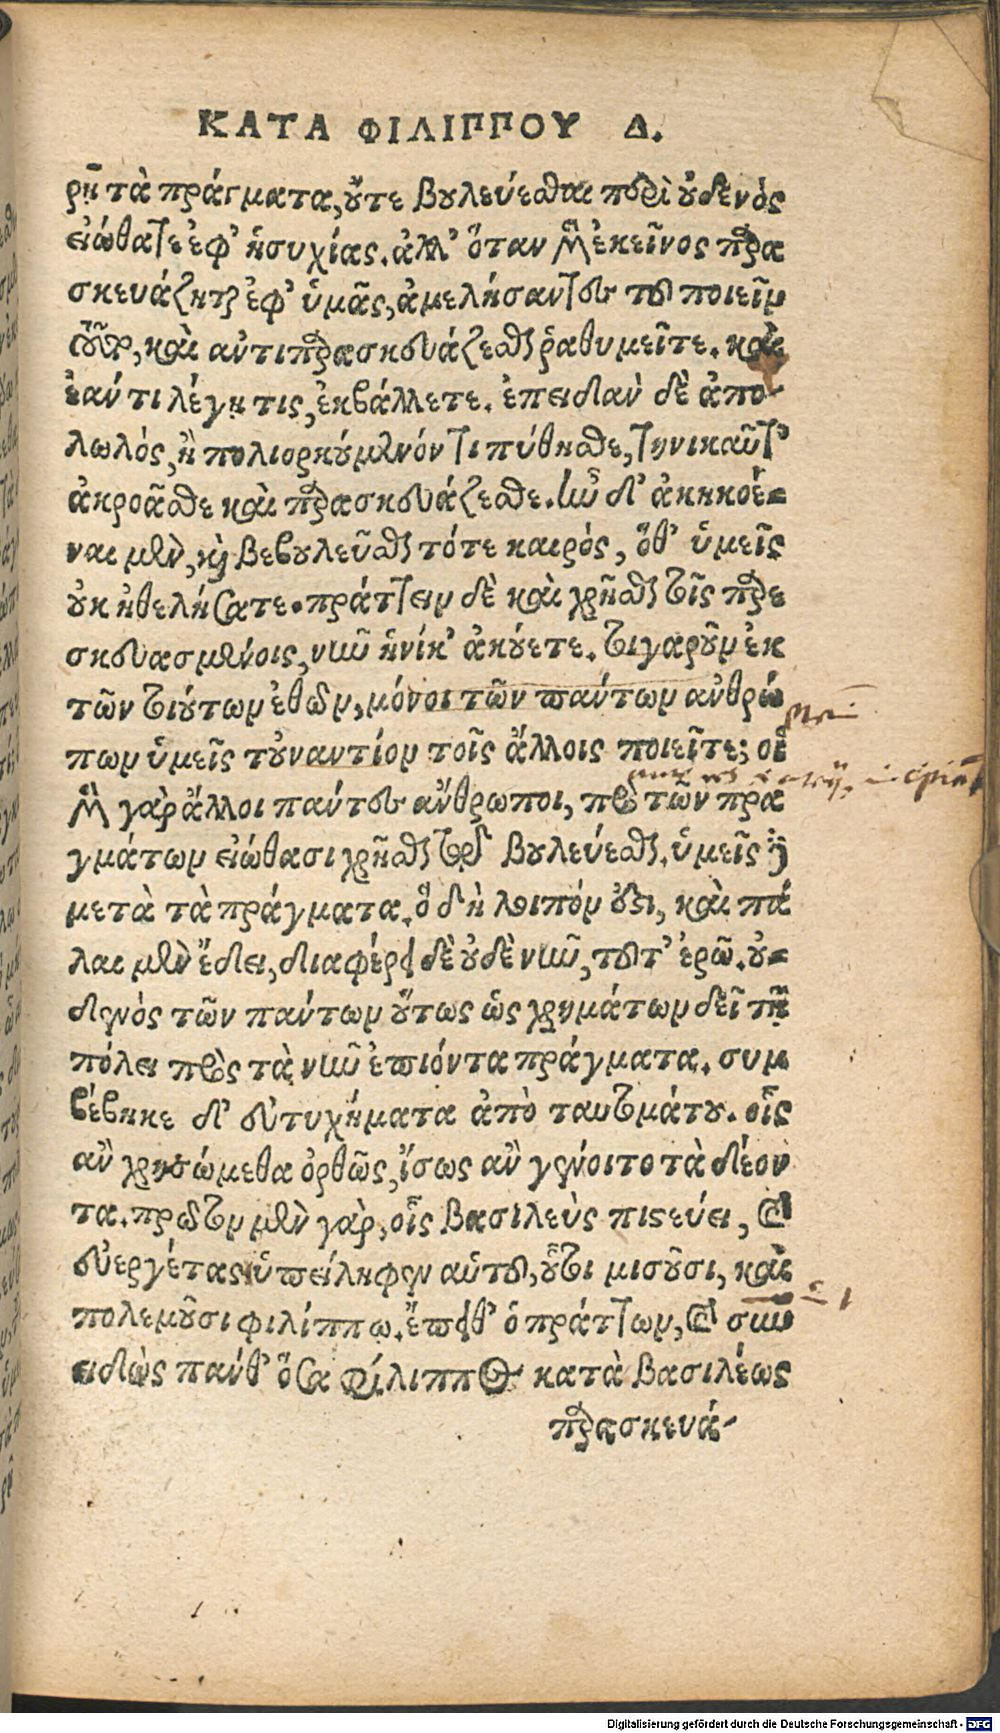 ΚΑΤΑ ΦΙΛΙΠΠΟΥ Δ.
ρῇ τὰ πράγματα, οὔτε βουλεύεσθαι περὶ οὐδενὸς
εἰώθατε ἐφ' ἡσυχίας. ἀλλ' ὅταν μὲν ἐκεῖνος παρα
σκευάζηται ἐφ' ὑμᾶς, ἀμελήσαντες τοῦ ποιεῖν
ταυτὸ, καὶ ἀντιπαρασκευάζεσθαι ῥαθυμεῖτε. καὶ
ἐάν τι λέγῃ τις, ἐκβάλλετε. ἐπειδὰν δὲ ἀπο-
λωλὸς, ἢ πολιορκούμενόν τι πύθησθε, τηνικαῦτ'
ἀκροᾶσθε καὶ παρασκευάζεσθε. ἦν δ' ἀκηκοέ=
ναι μὲν, καὶ βεβουλεῦσθαι τότε καιρὸς, ὅθ' ὑμεῖς
οὐκ ἠθελήσατε. πράττειν δὲ καὶ χρῆσθαι τοῖς παρε
σκευασμένοις, νῦν ἡνίκ' ἀκούετε. τοιγαροῦν ἐκ
τῶν τοιούτων ἐθῶν, μόνοι τῶν πάντων ἀνθρώ
πων ὑμεῖς τοὐναντίον τοῖς ἄλλοις ποιεῖτε; οἱ
μὲν γὰρ ἄλλοι πάντες ἄνθρωποι, πρὸ τῶν πρα
γμάτων εἰώθασι χρῆσθαι τῷ βουλεύεσθαι. ὑμεῖς δὲ
μετὰ τὰ πράγματα. ὃ δὴ λοιπόν ἐστι, καὶ πά
λαι μὲν ἔδει, διαφέρει δὲ οὐδὲ νῦν, τοῦτ' ἐρῶ. οὐ=
δενὸς τῶν πάντων οὕτως ὡς χρημάτων δεῖ τῇ
πόλει πρὸς τὰ νῦν ἐπιόντα πράγματα. συμ
βέβηκε δ' εὐτυχήματα ἀπὸ ταυτομάτου. οἷς
ἂν χρησώμεθα ὀρθῶς, ἴσως ἂν γένοιτο τὰ δέον
τα. πρῶτον μὲν γὰρ, οἷς βασιλεὺς πιστεύει, καὶ
εὐεργέτας ὑπείληφεν αὑτοῦ, οὗτοι μισοῦσι, καὶ
πολεμοῦσι φιλίππῳ. ἔπειθ' ὁ πράττων, καὶ συν
ειδὼς πάνθ' ὅσα φίλιππος κατὰ βασιλέως
παρασκευά-
Digitalisierung gefördert durch die Deutsche Forschungsgemeinschaft - DFG